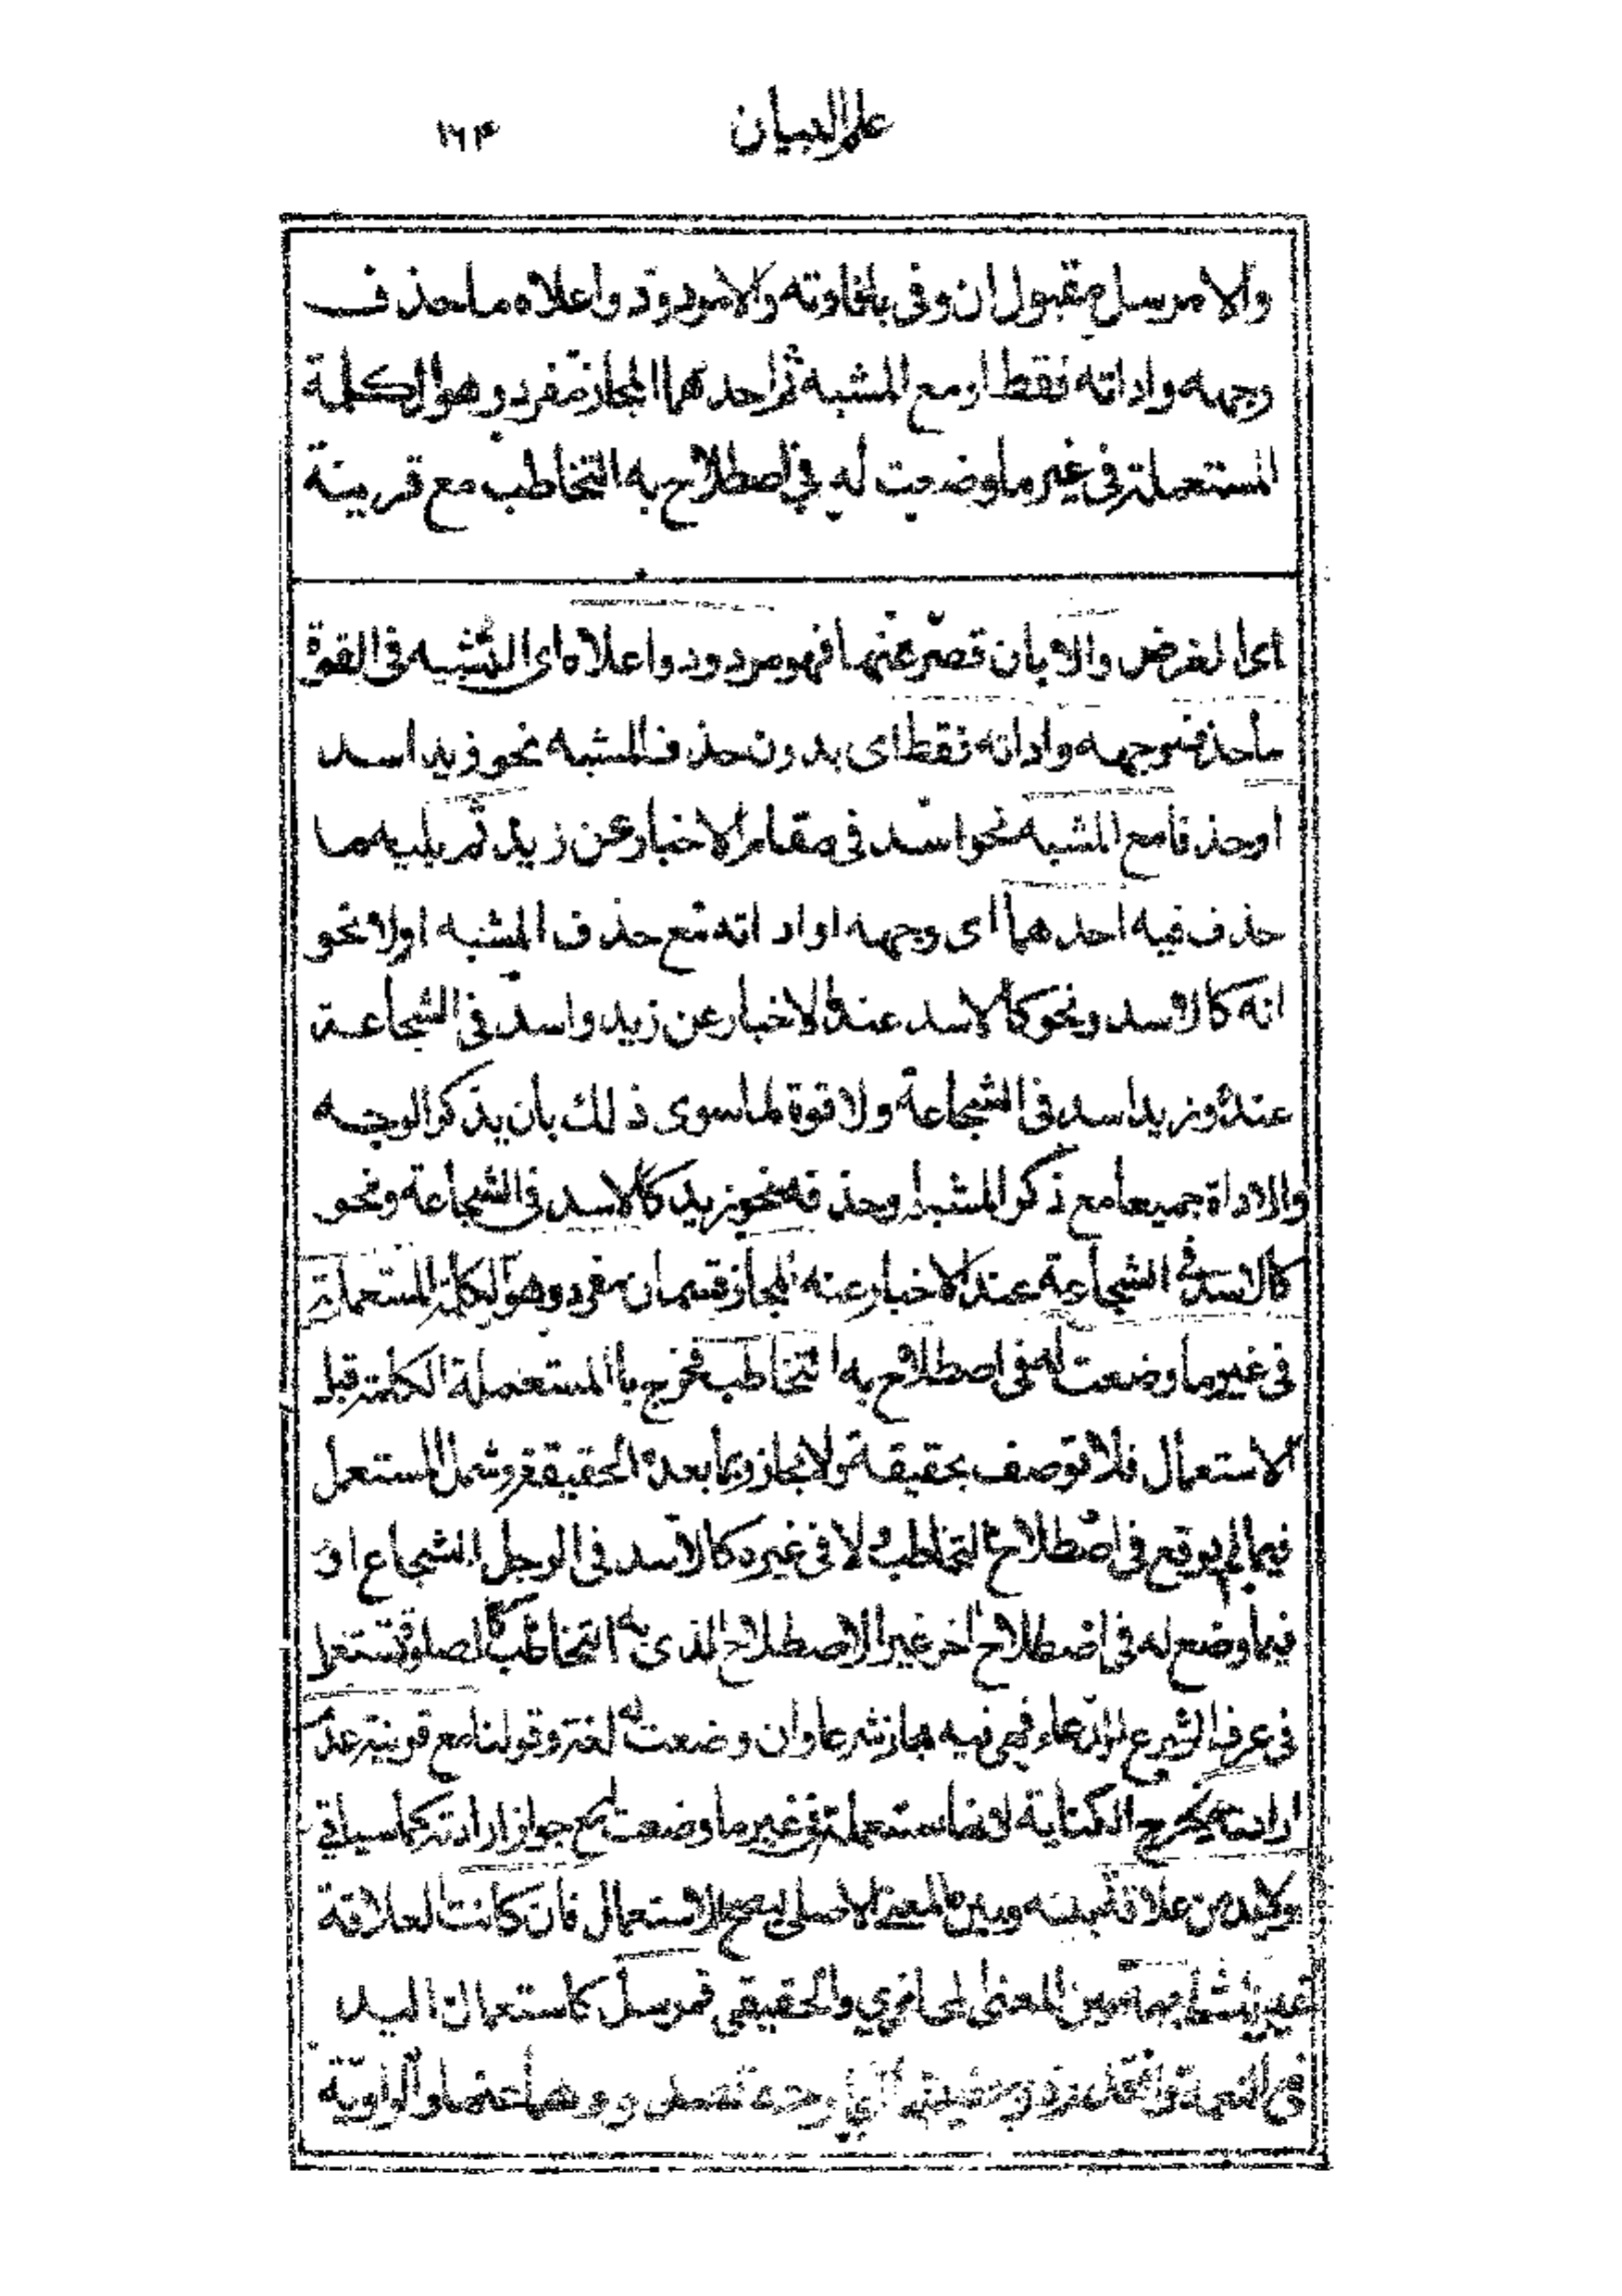 علم البيان ١٦٤
والا مرسل مقبول ان وفى بافادته والا مردود واعلاه ما حذف
وجهه واداته فقط او مع المشبه ثم احدهما المجاز مفرد وهو الكلمة
المستعملة فى غير ما وضعت له في اصطلاح به التخاطب مع قرينة
اى الغرض والا بان قصر عنها فهو مردود واعلاه اى التشبيه فى القوة
ما حذف وجهه واداته فقط اى بدون حذف المشبه نحو زيد اسد
او حذفا مع المشبه نحو اسد فى مقام الاخبار عن زيد ثم يليه ما
حذف فيه احدهما اى وجهه او اداته مع حذف المشبه اولا نحو
انه كالاسد ونحو كالاسد عند الاخبار عن زيد واسد فى الشجاعة
عنده وزيد اسد فى الشجاعة ولا قوة لما سوى ذلك بان يذكر الوجه
والاداة جميعا مع ذكر المشبه او حذفه نحو زيد كالاسد فى الشجاعة ونحو
كالاسد في الشجاعة عند الاخبار عنه المجاز قسمان مفرد وهو الكلمة المستعملة
فى غير ما وضعت له فى اصطلاح به التخاطب فخرج باالمستعملة الكلمة قبل
الاستعمال فلا توصف بحقيقة ولا مجاز وبما بعده الحقيقة وشمل المستعمل
فيما لم يوضع فى اصطلاح التخاطب ولا فى غيره كالاسد فى الرجل الشجاع او
فيما وضع له فى اصطلاح اخر غير الاصطلاح الذى به التخاطب كالصلوة تستعمل
فى عرف الشرع للدعاء فهى فيه مجاز شرعا وان وضعت له لغة وقولنا مع قرينة عدم
ارادته يخرج الكناية لانها مستعملة فى غير ما وضعت له مع جواز ارادته كما سياتي
ولابد من علاقة بينه وبين المعنى الاصلى ليصح الاستعمال فان كانت العلاقة
غير المشابهة بين المعنى المجازي والحقيقي فمرسل كاستعمال اليد
فى النعمة والقدرة وحقيقتها وهما عنها والراوية